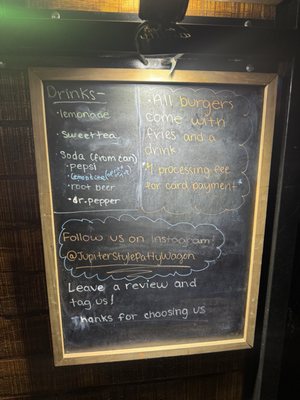 Drinks-
· lemonade
· sweet tea
Soda (from can)
· pepsi
· root beer
· dr. pepper
· All burgers
come with
fries and a
drink.
* $1 processing fee
for card payment *
Follow us on Instagram!
@JupiterStylePattyWagon
Leave a review and
tag us!
Thanks for choosing us